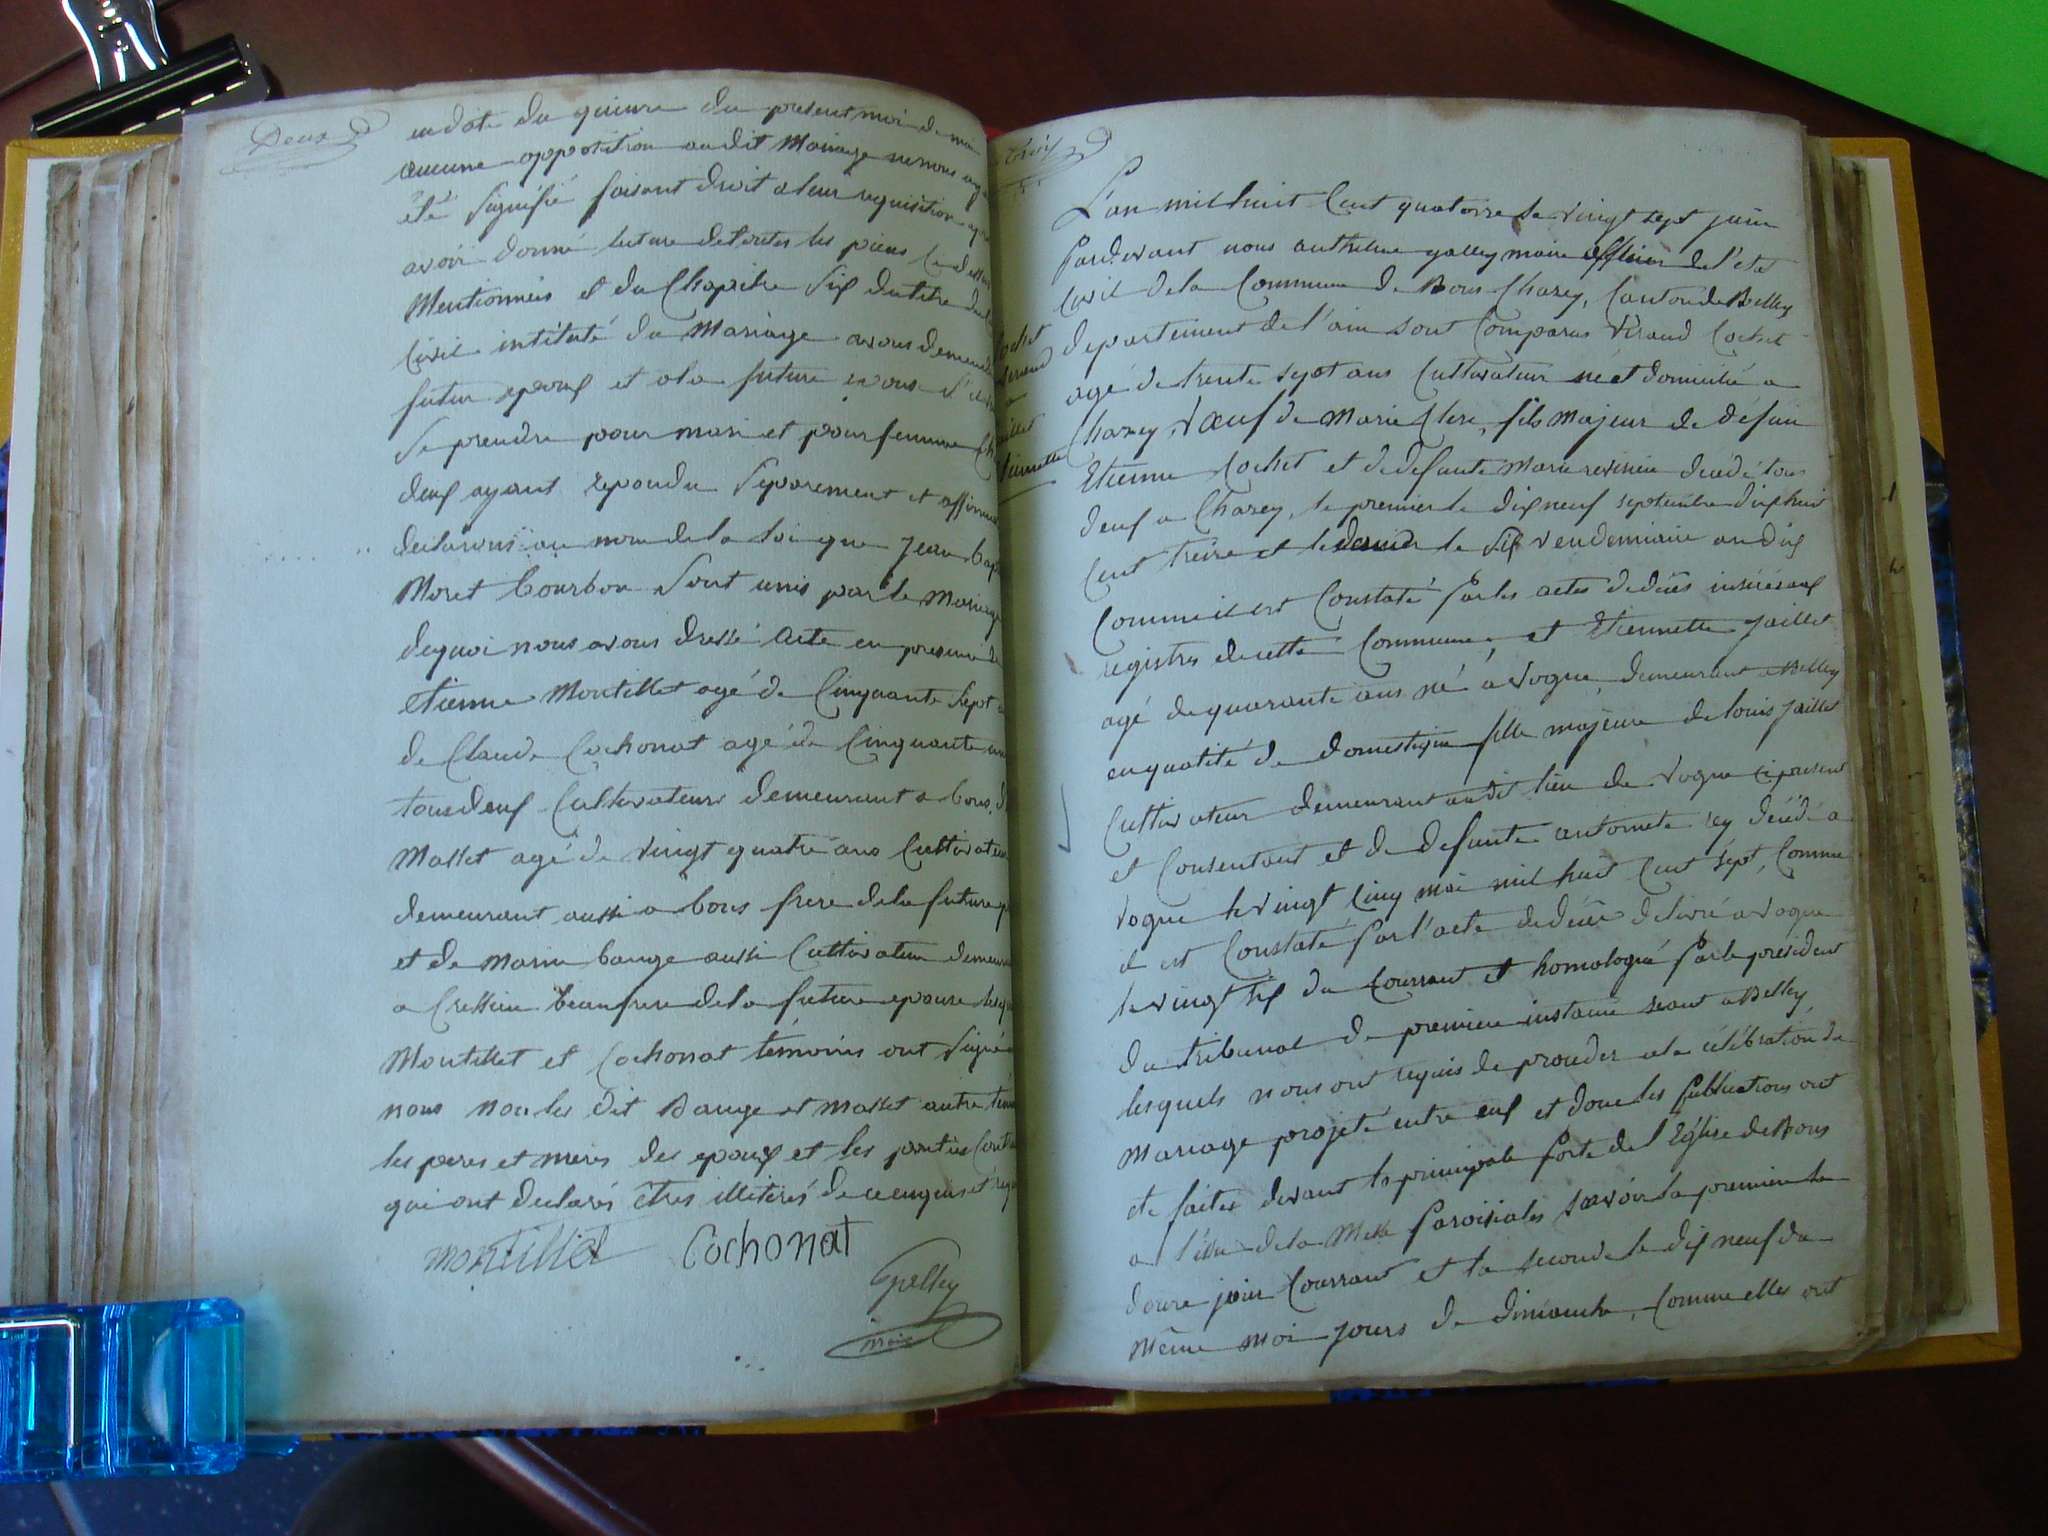 Deux
en date du quinze du present moi de mai
aucune opposition audit Mariage ne nous
été Signifié faisant droit a leur requisition
avoir donné lecture de toutes les pieces
Mentionnées et du Chapitre Six du titre du
Civil intitulé du Mariage avons demandé
futur epoux et a la future
Se prendre pour mari et pour femme
deux ayant repondu Separement et
declarons au nom de la loi que jean
Moret bourbon sont unis par le Mariage
de quoi nous avons dressé Acte en presence de
etienne Montillet agé de Cinquante Sept
de Claude Cochonat agé de Cinquante
tous deux Cultivateurs demeurant a bons
Masset agé de vingt quatre ans Cultivateur
demeurant aussi a bons frere de la future
et de bauge aussi Cultivateur
a Cressieu beaufrere de la future epouse
Montillet et Cochonat témoins ont Signé
nous non les dit Bauge et Masset autre
les peres et meres des epoux et les parties
qui ont declarés êtres illiterés de ce enquis et
montillet Cochonat
Galley
maire
Trois
L'an mil huit Cent quatorze le vingt sept juin
Pardevant nous anthelme galley maire officier de l'etat
Civil de la Commune de Bons Chazey, Canton de Belley
departement de l'ain sont Comparus Cochet
agé de trente sept ans Cultivateur né et domicilié a
Chazey, vœuf de Marie fils majeur de défun
Etienne Cochet et de defunte Marie décédé tous
deux a Chazey, le premier le dix neuf septembre dix huit
Cent treize et le dernier le Six vendemiaire an dix
Comme il est Constaté par les actes de décès insérés aux
registres de cette Commune, et Etiennette jaillet
agé de quarante ans né a vogne, demeurant a Belley
en qualité de domestique fille majeure de louis jaillet
Cultivateur demeurant audit lieu de vogne ci present
et Consentant et de defunte antoinete rey décédé a
vogne le vingt Cinq mai mil huit Cent sept, Comme
il est Constaté par l'acte de décès delivré a vogne
le vingt six du Courrant et homologué par le président
du tribunal de premiere instance seant a Belley,
lesquels nous ont requis de proceder a la célébration du
Mariage projeté entre eux et donc les Publications ont
été faites devant la principale porte de l'Eglise de Bons
a l'issu de la Messe Paroisiales savoir la premiere le
douze juin Courrant et la seconde le dix neuf du
même moi jours de dimanche, Comme elles ont